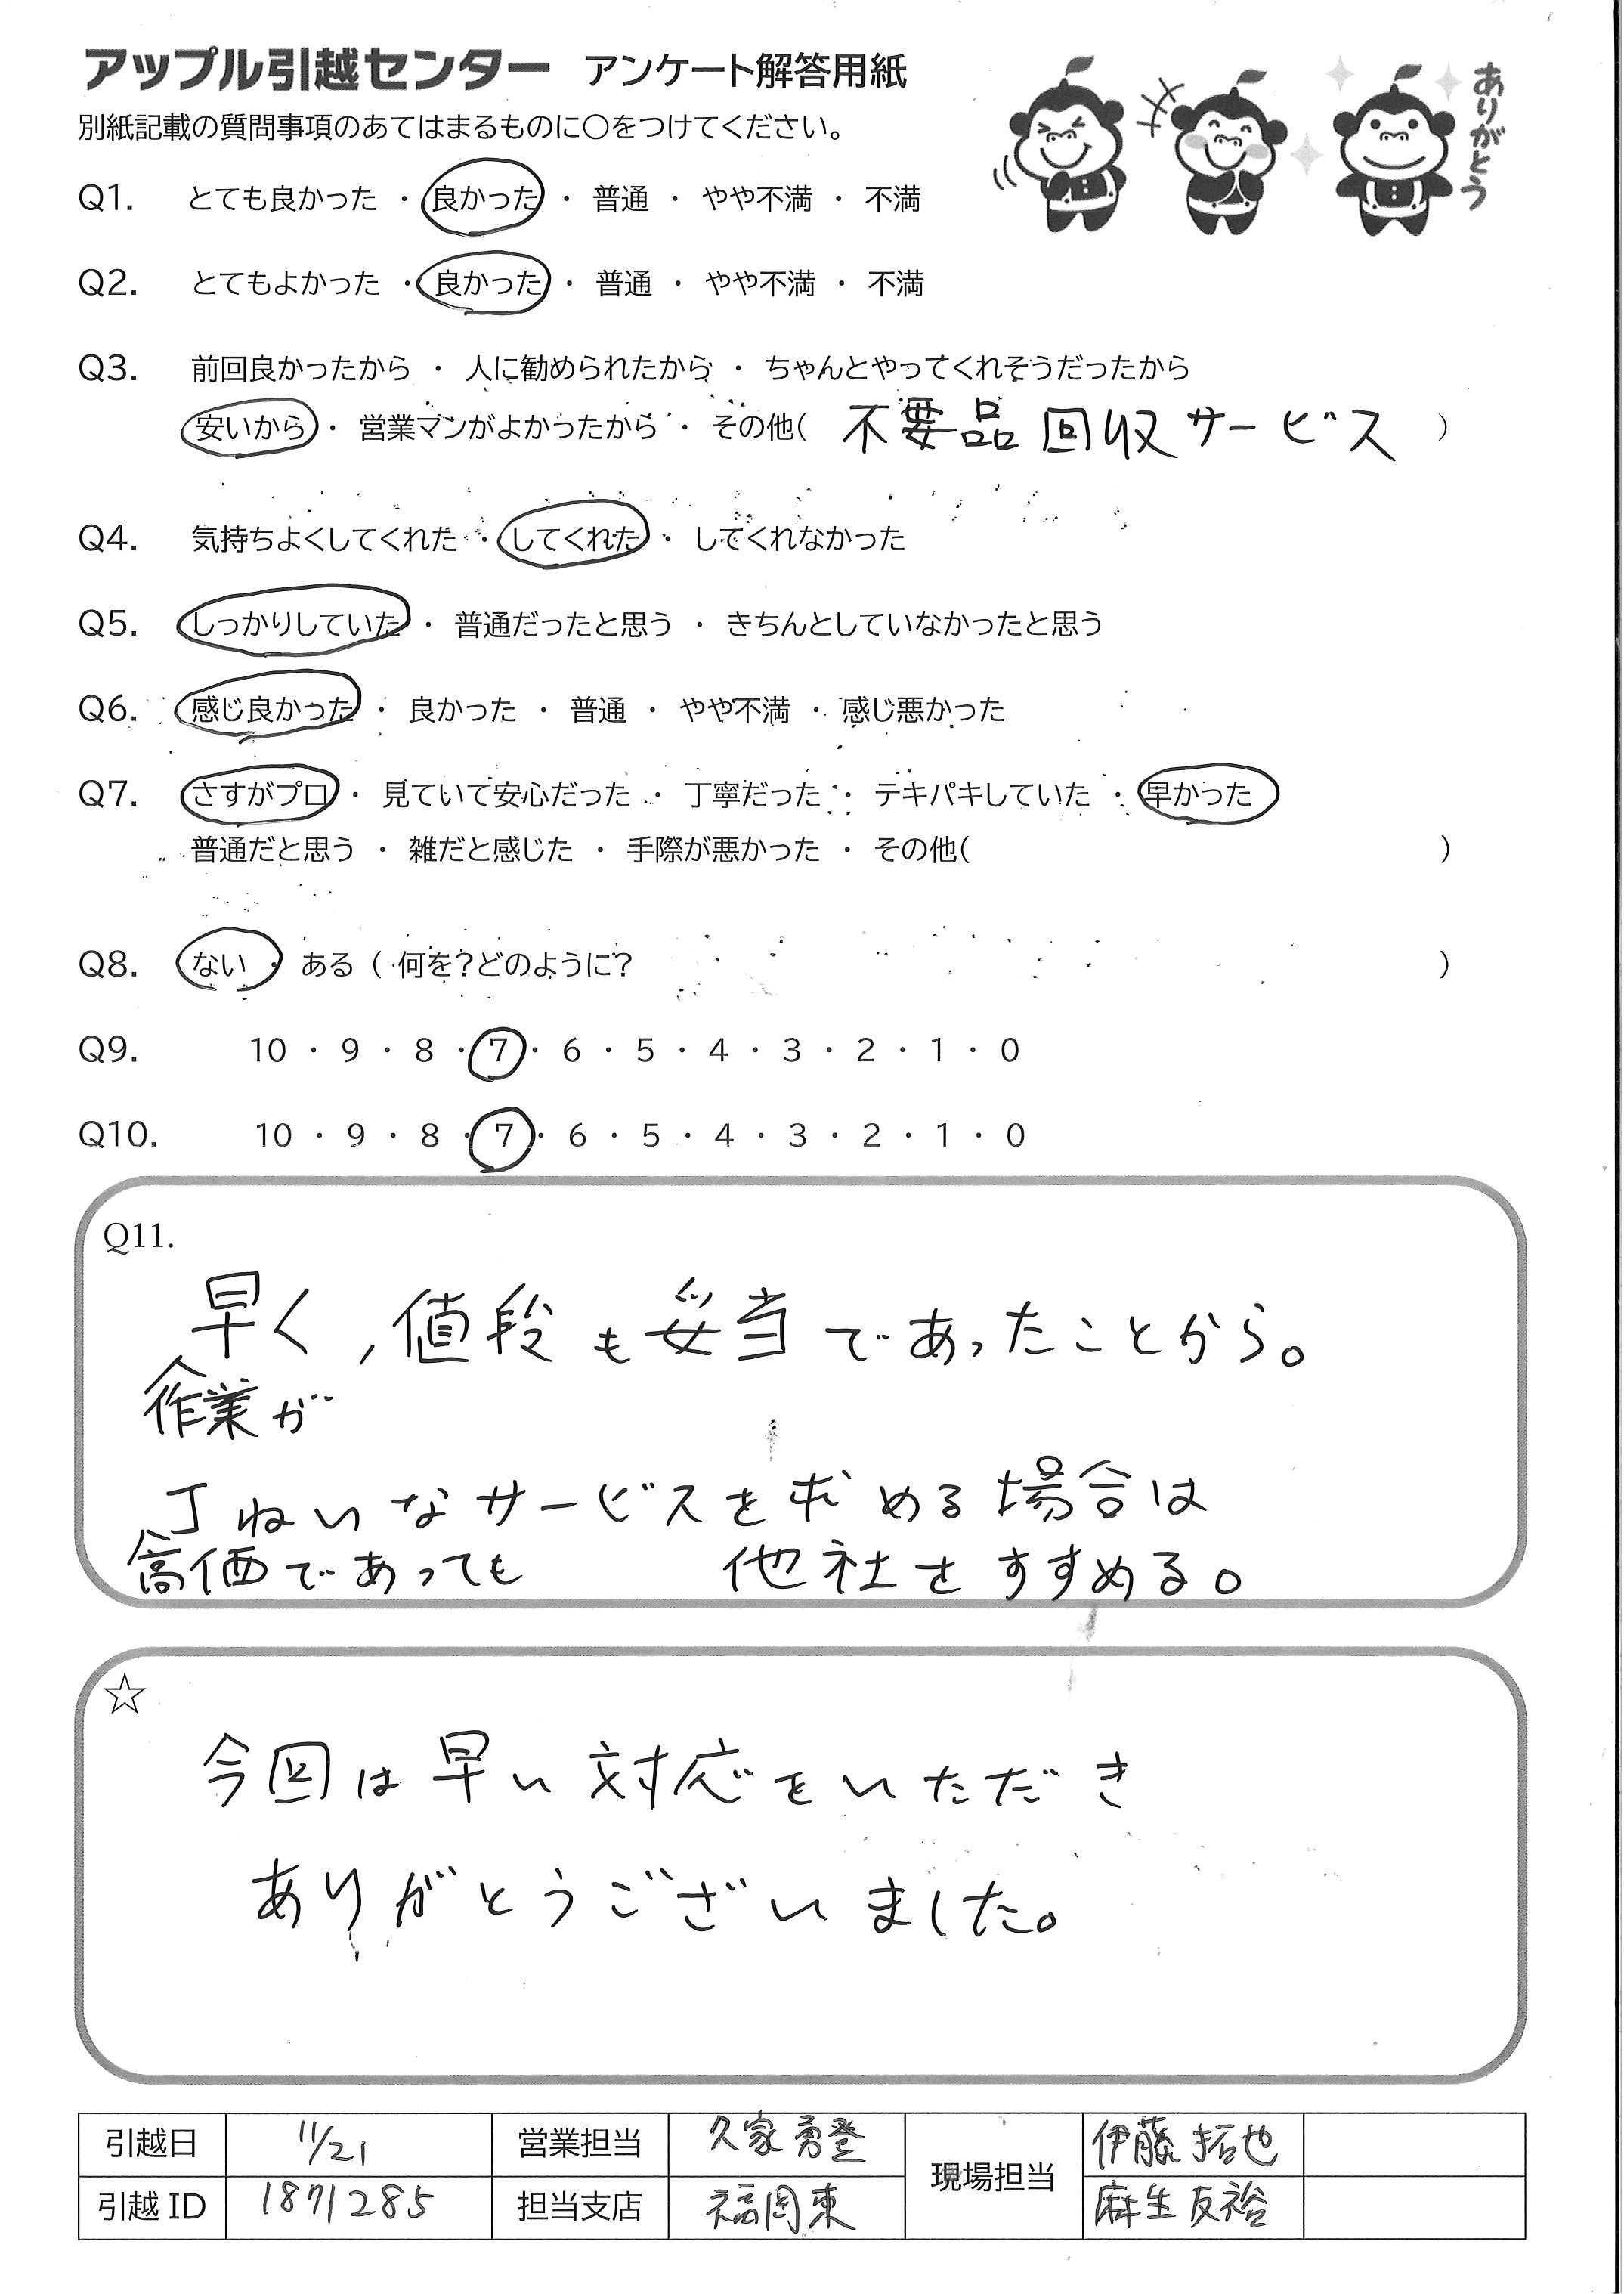 アップル引越センター アンケート解答用紙
別紙記載の質問事項のあてはまるものに○をつけてください。
ありがとう
Q1. とても良かった ・ 良かった ・ 普通 ・ やや不満 ・ 不満
Q2. とてもよかった ・ 良かった ・ 普通 ・ やや不満 ・ 不満
Q3. 前回良かったから ・ 人に勧められたから ・ ちゃんとやってくれそうだったから
安いから ・ 営業マンがよかったから ・ その他( 不要品回収サービス )
Q4. 気持ちよくしてくれた ・ してくれた ・ してくれなかった
Q5. しっかりしていた ・ 普通だったと思う ・ きちんとしていなかったと思う
Q6. 感じ良かった ・ 良かった ・ 普通 ・ やや不満 ・ 感じ悪かった
Q7. さすがプロ ・ 見ていて安心だった ・ 丁寧だった ・ テキパキしていた ・ 早かった
普通だと思う ・ 雑だと感じた ・ 手際が悪かった ・ その他( )
Q8. ない ・ ある ( 何を?どのように? )
Q9. 10 ・ 9 ・ 8 ・ 7 ・ 6 ・ 5 ・ 4 ・ 3 ・ 2 ・ 1 ・ 0
Q10. 10 ・ 9 ・ 8 ・ 7 ・ 6 ・ 5 ・ 4 ・ 3 ・ 2 ・ 1 ・ 0
Q11.
早く,値段も妥当であったことから。
作業が
丁ねいなサービスを求める場合は
高価であっても 他社をすすめる。
☆
今回は早い対応をいただき
ありがとうございました。
引越日 11/21 営業担当 久家勇登 現場担当 伊藤拓也
引越ID 1871285 担当支店 福岡東 麻生友裕